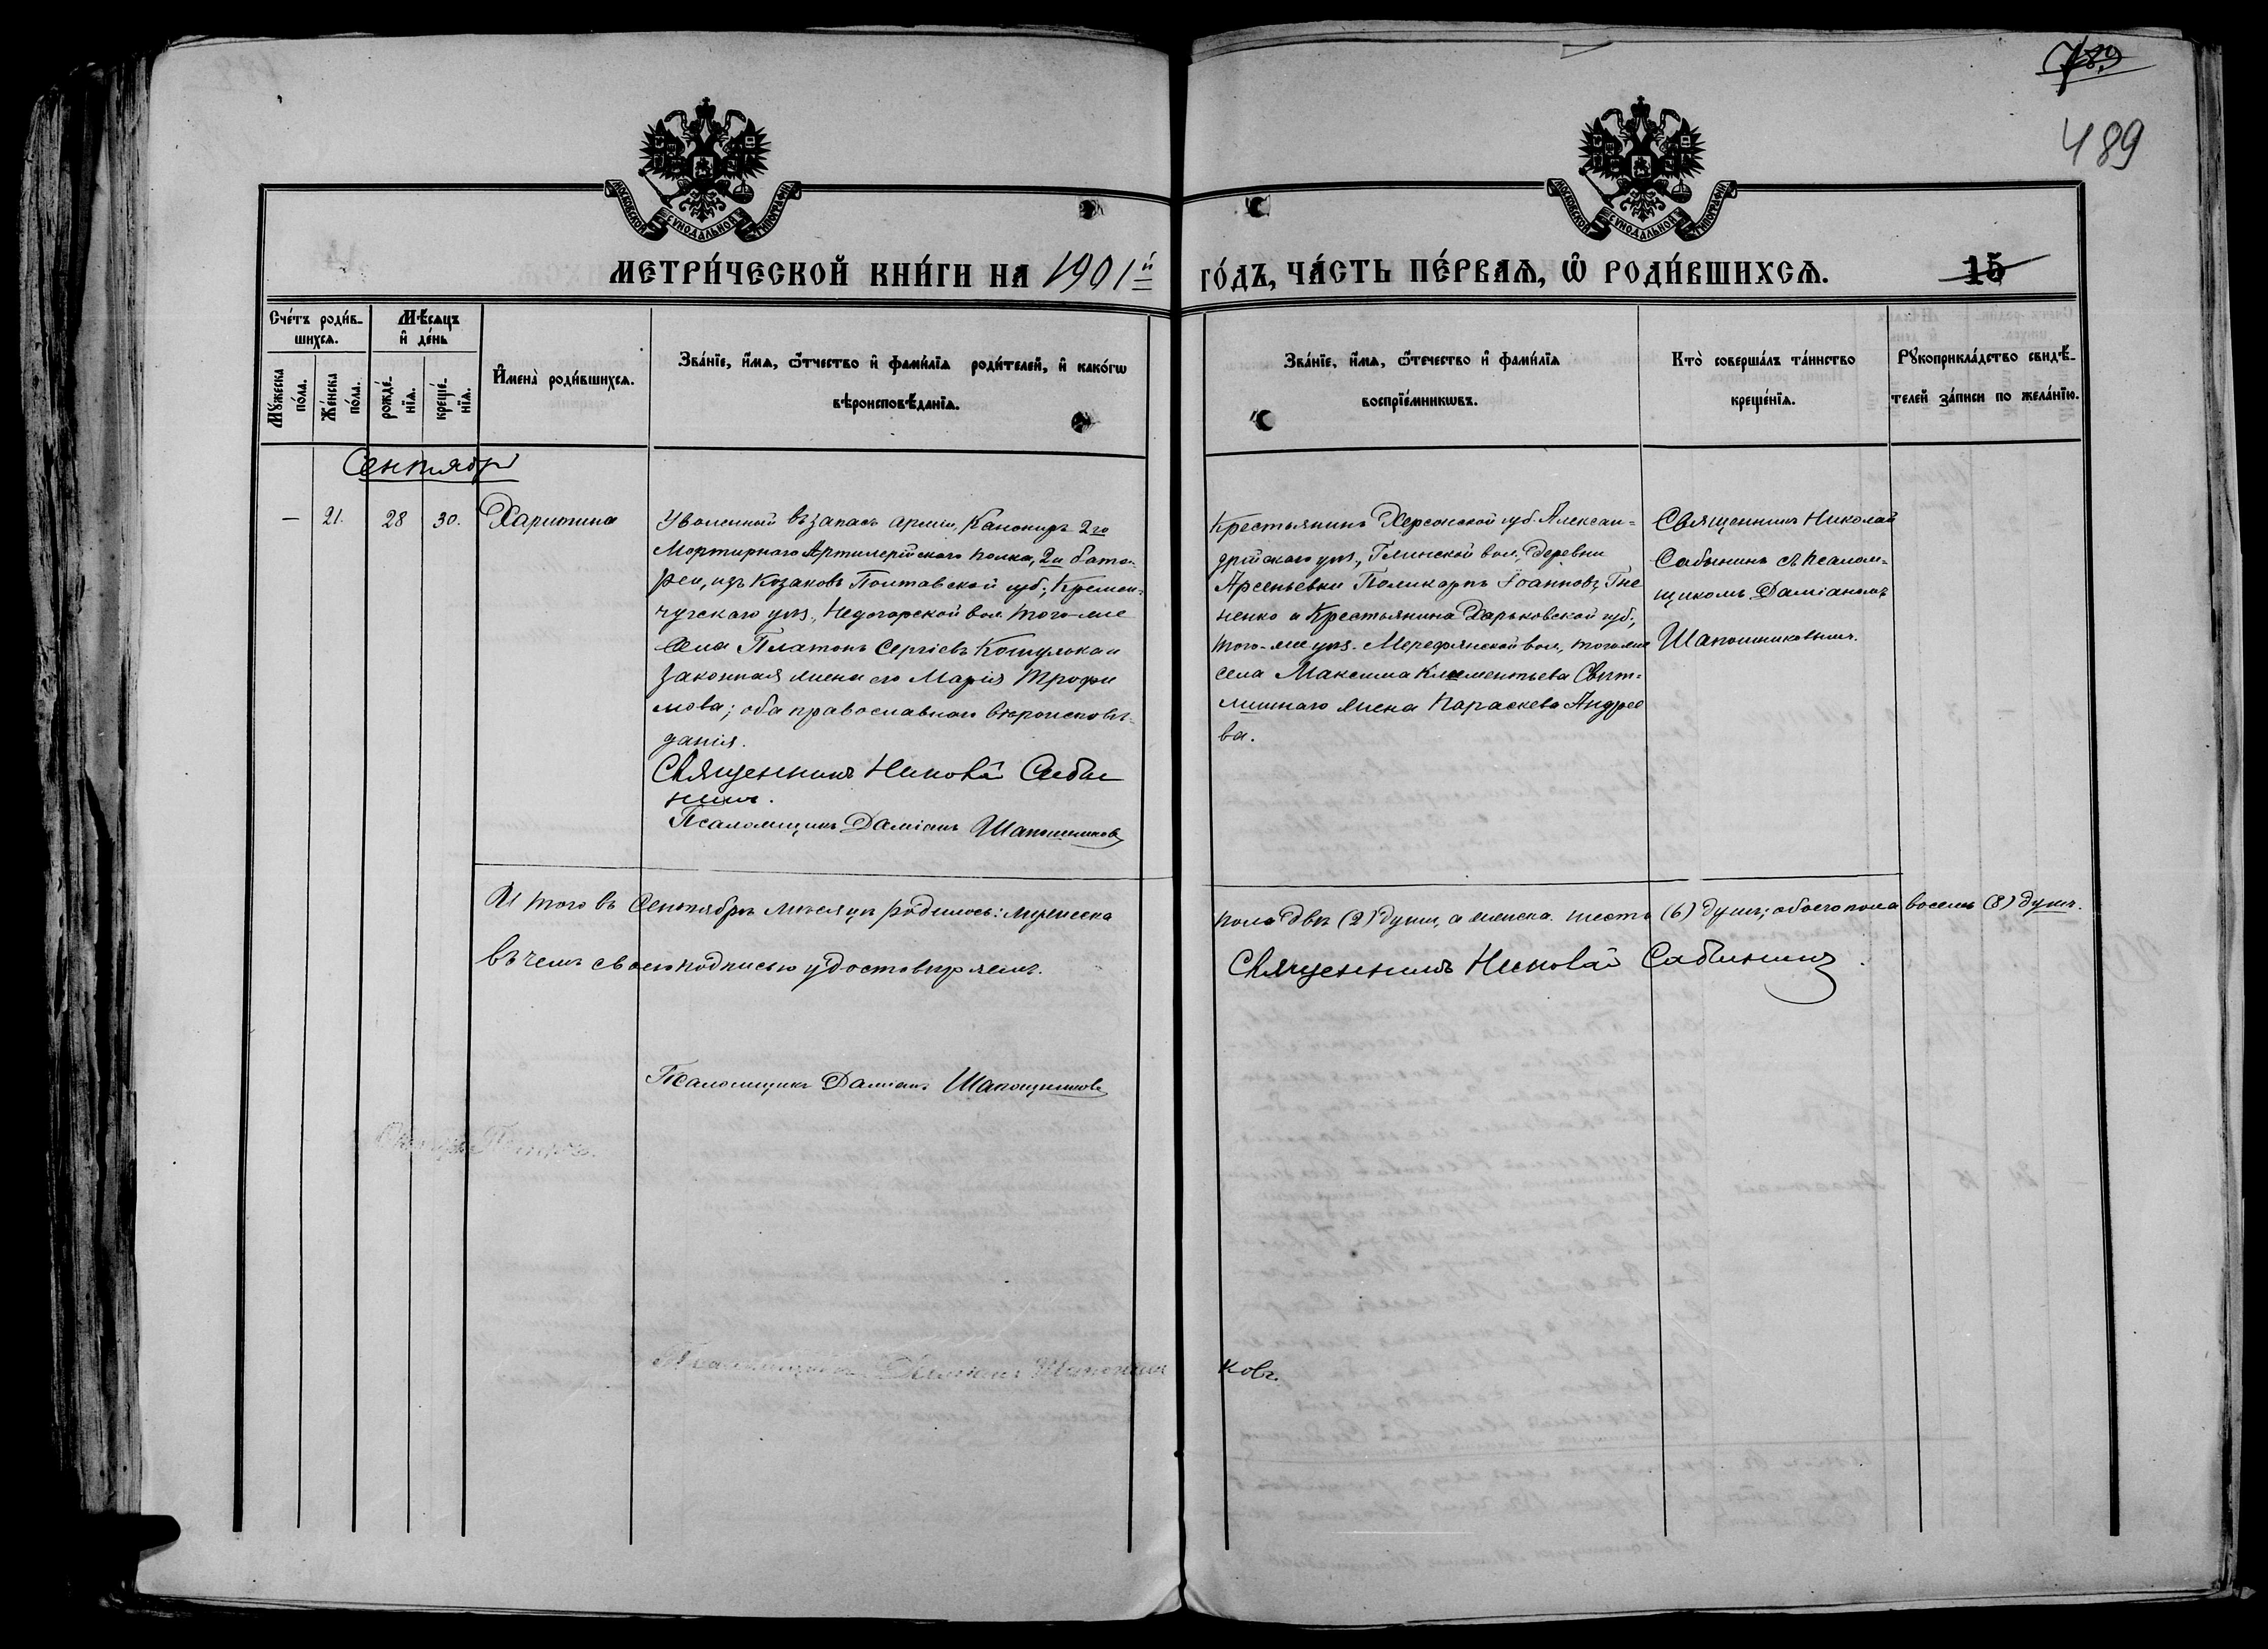 789
489
МОСКОВСКОЙ СѴНОДАЛЬНОЙ ТИПОГРАФІИ
МОСКОВСКОЙ СѴНОДАЛЬНОЙ ТИПОГРАФІИ
МЕТРИ́ЧЕСКОЙ КНИ́ГИ НА 1901й ГО́ДЪ, ЧА́СТЬ ПЕ́РВАѦ, Ѡ҆ РОДИ́ВШИХСѦ.
15
Сче́тъ роди́в-
шихсѧ.
Мꙋ́жеска
по́ла.
Же́нска
по́ла.
Мѣ́сѧцъ
и҆ де́нь
рожде́-
нїѧ.
креще́-
нїѧ.
И҆мена̀ роди́вшихсѧ.
Зва́нїе, и҆́мѧ, ѻ҆́тчество и҆ фами́лїѧ роди́телей, и҆ како́гѡ
вѣроисповѣ́данїѧ.
Зва́нїе, и҆́мѧ, ѻ҆́течество и҆ фами́лїѧ
воспрїе́мникѡвъ.
Кто̀ соверша́лъ та́инство
креще́нїѧ.
Рꙋкоприкла́дство свидѣ́-
телей за́писи по жела́нїю.
Сентябрь
— 21. 28 30. Харитина
Уволенный въ запасъ арміи, Канониръ 2го
Мортирнаго Артилерійскаго полка, 2й бата-
реи, изъ Козаковъ Полтавской губ., Кремен-
чугскаго уѣз., Недогарской вол. того-же
села Платонъ Сергіевъ Кошулька и
законная жена его Марія Трофи
мова; оба православнаго вѣроисповѣ-
данія.
Священникъ Николай Сабы
нинъ.
Псаломщикъ Даміанъ Шапошниковъ
Крестьянинъ Херсонской губ. Алексан-
дрійскаго уѣз., Глинской вол., деревни
Арсеньевки Поликарпъ Іоанновъ Гне
ненко и Крестьянина Харьковской губ.,
того-же уѣз. Мерефянской вол., того же
села Максима Климентьева Свѣт-
личнаго жена Параскева Андрее
ва.
Священникъ Николай
Сабынинъ съ псалом-
щикомъ Даміаномъ
Шапошниковымъ.
Итого въ Сентябрѣ мѣсяцѣ родилось: мужеска пола двѣ (2) души, а женска шесть (6) душъ; обоего пола восемь (8) душъ.
Въ чемъ своею подписью удостовѣряемъ. Священникъ Николай Сабынинъ
Псаломщикъ Даміанъ Шапошниковъ
Псаломщикъ Даміанъ Шапошни ковъ.